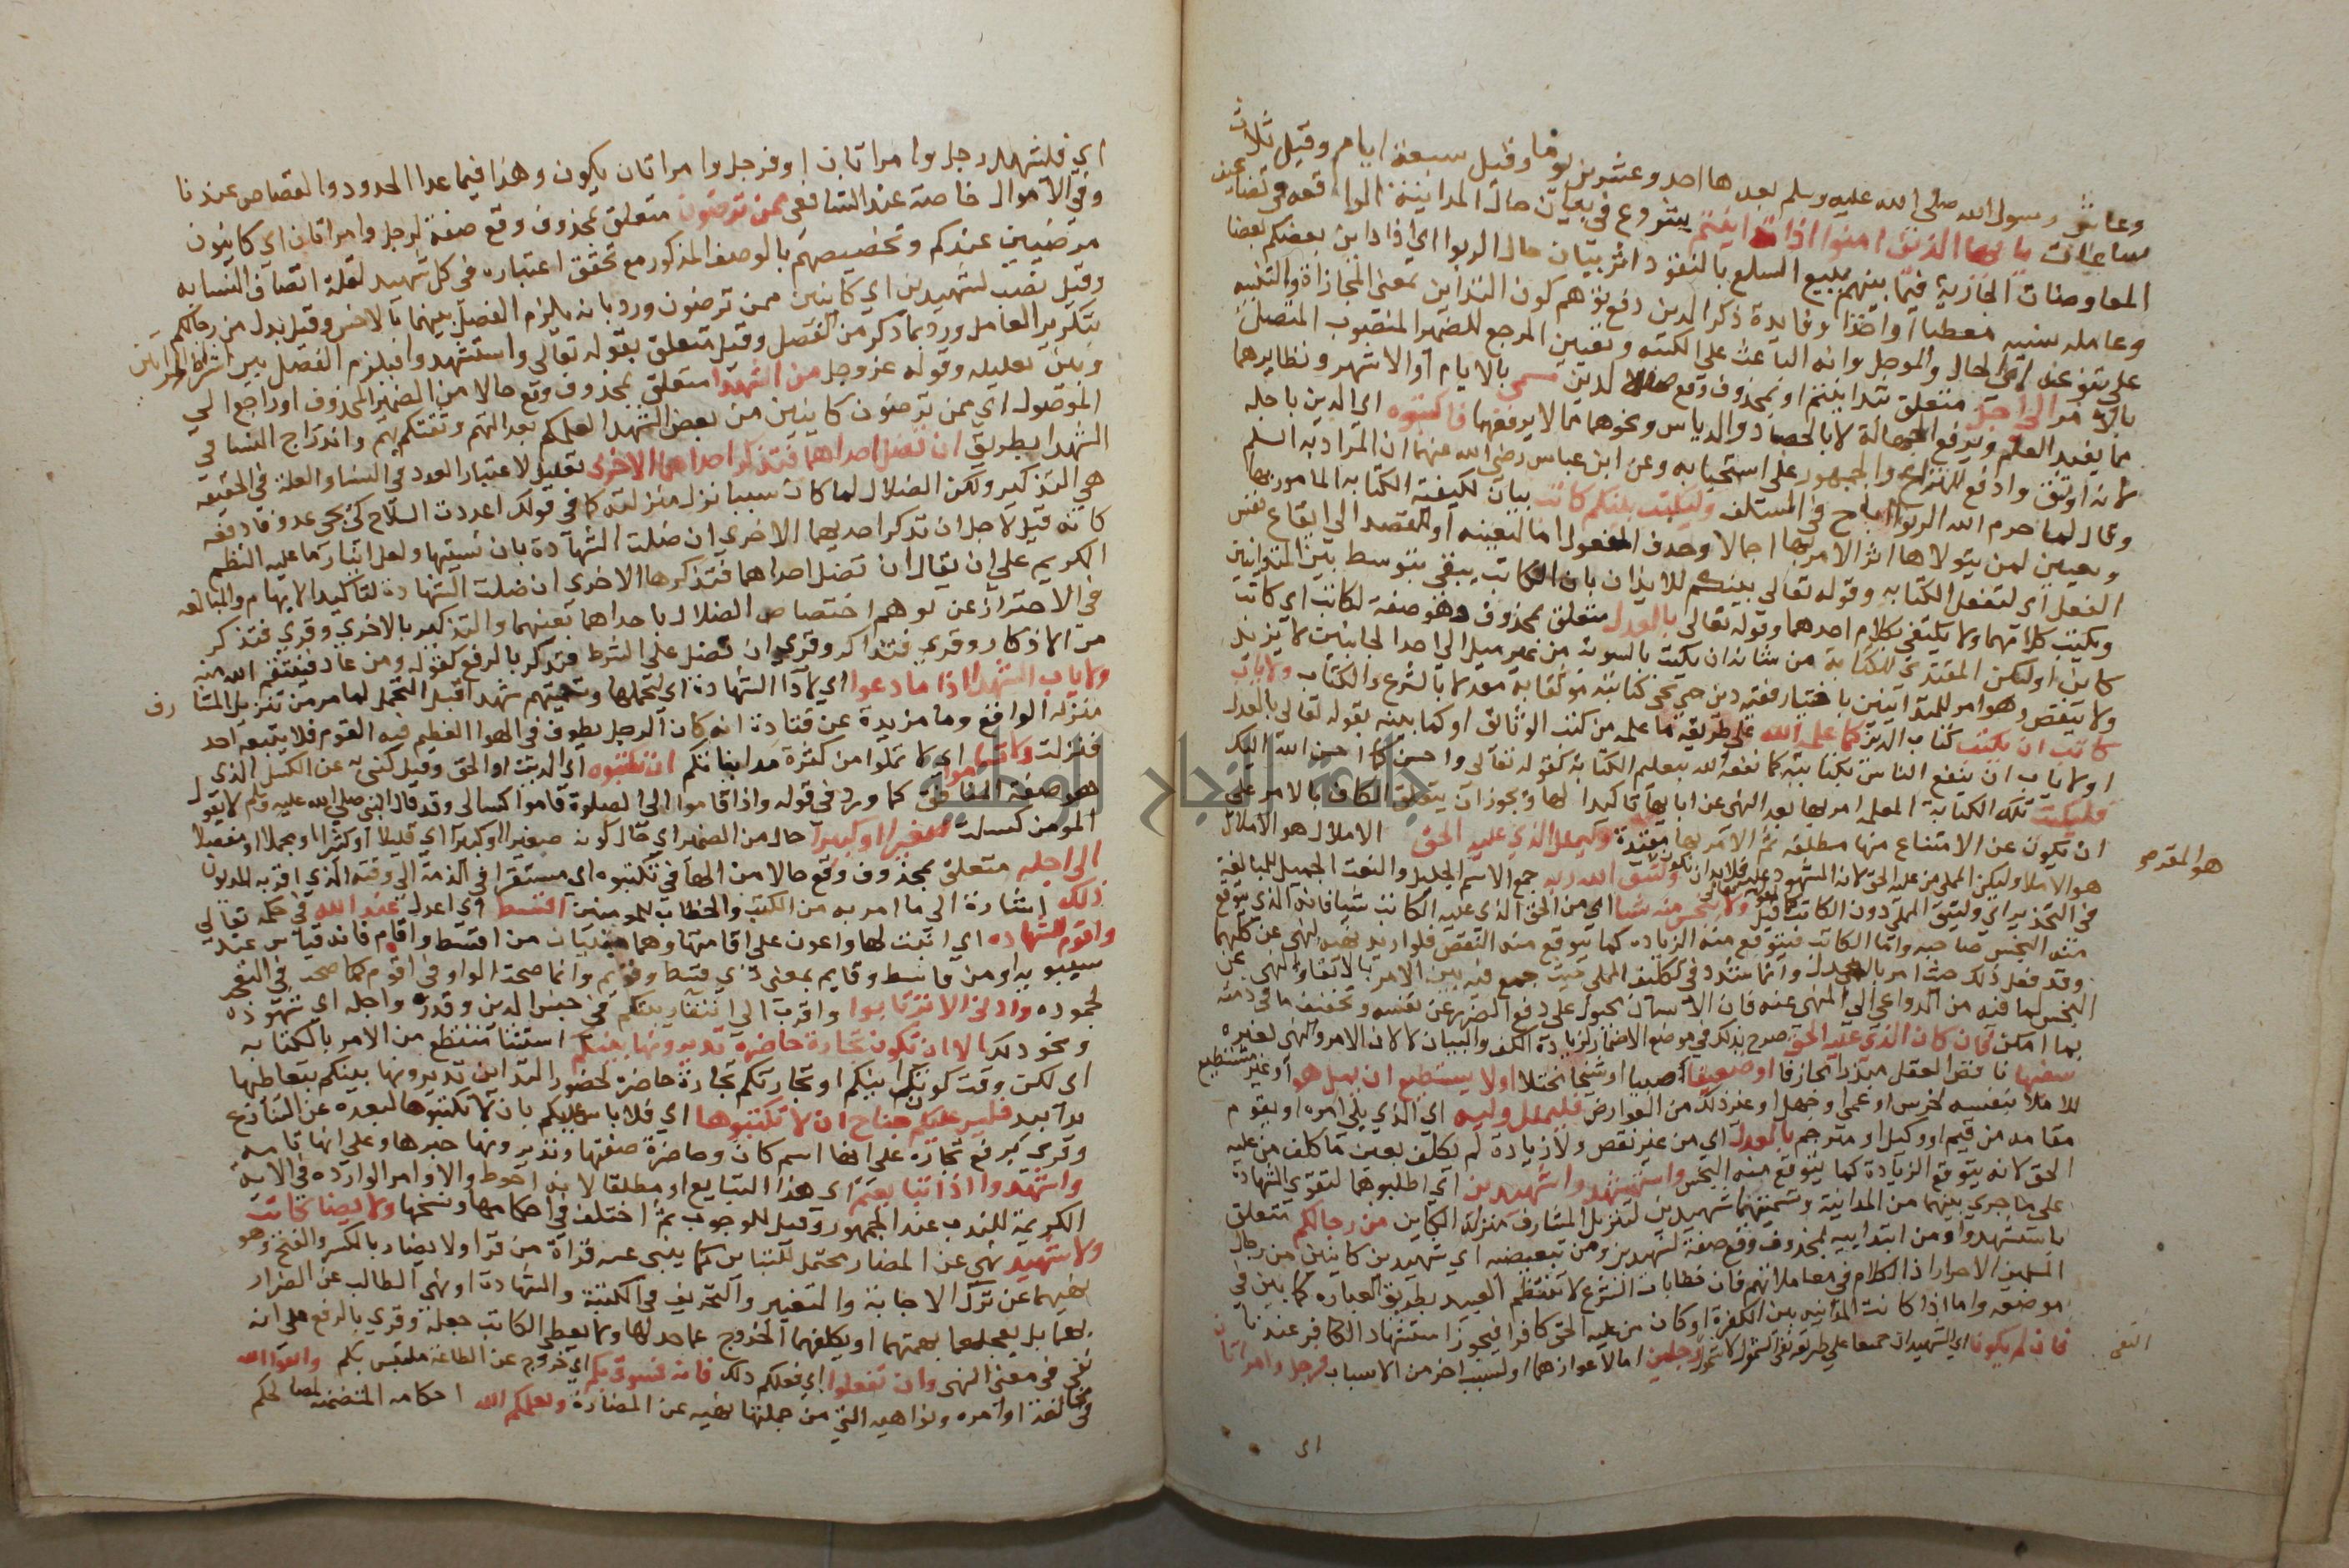 وعاش رسول الله صلى الله عليه وسلم بعدها احد وعشرين يوما وقيل سبعة ايام وقيل ثلاث
ساعات يا ايها الذين امنوا اذا تداينتم شروع في بيان حال المداينة الواقعه في تضاعيف
المعاوضات الجارية فيما بينهم ببيع السلع بالنقود اثر بيان حال الربوا اي اذا داين بعضكم بعضا
وعامله نسيه معطيا او اخذا وفايدة ذكر الدين دفع توهم كون التداين بمعنى المجازاة والتنبيه
على تنوعه الى الحال والموجل وانه الباعث على الكتبه وتعيين المرجع للضمير المنصوب المتصل
بالامر الى اجل متعلق بتداينتم او بمحذوف وقع صفة لدين مسمى بالايام او الاشهر ونظايرهما
مما يفيد العلم ويرفع الجهالة لا بالحصاد والدياس ونحوهما مما لا يرفعها فاكتبوه اي الدين باجله
لانه اوثق وادفع للنزاع والجمهور على استحبابه وعن ابن عباس رضي الله عنهما ان المراد به السلم
وقال لما حرم الله الربوا اباح في السلف وليكتب بينكم كاتب بيان لكيفية الكتابه المامور بها
وتعيين لمن يتولاها اثر الامر بها اجمالا وحذف المفعول اما لتعينه او للقصد الى ايقاع نفس
الفعل اي لتفعل الكتابه وقوله تعالى بينكم للايذان بان الكاتب ينبغي ان يتوسط بين المتداينين
ويكتب كلامهما ولا يكتفي بكلام احدهما وقوله تعالى بالعدل متعلق بمحذوف وهو صفة لكاتب اي كاتب
كاين او ليكن المقتدى للكتابة من شانه ان يكتب بالسوية من غير ميل الى احد الجانبين لا يزيد
ولا ينقص وهو امر للمتداينين باختيار فقيه دين حتى يجي كتابته موثقا به معدلا بالشرع والكتاب ولا ياب
كاتب ان يكتب كتاب الدين كما علمه الله على طريقة ما علمه من كتب الوثائق او كما بينه بقوله تعالى بالعدل
او لا ياب ان ينفع الناس بكتابته كما نفعه الله بتعليم الكتابة كقوله تعالى واحسن كما احسن الله اليك
فليكتب تلك الكتابة المعلمه امر بها بعد النهي عن ابايها تاكيدا لها ويجوز ان يتعلق الكاف بالامر على
ان يكون عن الامتناع منها مطلقه ثم الامر بها مقيدة وليملل الذي عليه الحق الاملال هو الاملا
هو الاملا وليكن المملي من عليه الحق لانه المشهود عليه فلا بد ان يكون وليتق الله ربه جمع الاسم الجليل والنعت الجميل للمبالغة
هو المقر
في التحذير اي وليتق المملي دون الكاتب قيل ولا يبخس منه شيا اي من الحق الذي عليه الكاتب شيا فانه الذي يتوقع
منه البخس صاحبه واما الكاتب فيتوقع منه الزياده كما يتوقع منه النقص فلو اريد نهيه لنهي عن كليهما
وقد فعل ذلك حيث امر بالعدل وانما شدد في تكليف المملي حيث جمع فيه بين الامر بالاتقا والنهي عن
البخس لما فيه من الدواعي الى المنهي عنه فان الانسان مجبول على دفع الضرر عن نفسه وتخفيف ما في ذمته
بما امكن فان كان الذي عليه الحق صرح بذلك في موضع الاضمار لزيادة الكشف والبيان لا لان الامر والنهي لغيره
سفيها ناقص العقل مبذرا مجازفا او ضعيفا صبيا او شيخا مختلا او لا يستطيع ان يمل هو او غير مستطيع
للاملا بنفسه لخرس او عمى او جهل او غير ذلك من العوارض فليملل وليه اي الذي يلي امره او يقوم
مقامه من قيم او وكيل او مترجم بالعدل اي من غير نقص ولا زيادة لم يكلف بعين ما كلف من عليه
الحق لانه يتوقع الزيادة كما يتوقع منه البخس واستشهدوا شهيدين اي اطلبوهما لتقوي الشهادة
على ما جرى بينهما من المداينة وتسميتهما شهيدين لتنزيل المشارف منزلة الكاين من رجالكم تتعلق
باستشهدوا ومن ابتداييه بمحذوف وقع صفة لشهيدين ومن تبعيضيه اي شهيدين كاينين من رجال
المسلمين الاحرار اذ الكلام في معاملاتهم فان خطابات الشرع لا تنتظم العبيد بطريق العباره كما بين في
موضعه واما اذا كانت المداينه بين الكفرة او كان من عليه الحق كافرا فيجوز استشهاد الكافر عندنا
فان لم يكونا اي الشهيدان جميعا على طريقه نفي الشمول لا شمول رجلين اما لاعوازهما او لسبب اخر من الاسباب فرجل وامراتان
النفي
اي
اي فليشهد رجل وامراتان او فرجل وامراتان يكون وهذا فيما عدا الحدود والقصاص عندنا
وفي الاموال خاصة عند الشافعي ممن ترضون متعلق بمحذوف وقع صفة لرجل وامراتان اي كاينون
مرضيين عندكم وتخصيصهم بالوصف المذكور مع تحقق اعتباره في كل شهيد لقلة اتصاف النسا به
وقيل نصب لشهيدين اي كاينين ممن ترضون ورد بانه يلزم الفصل بينهما بالاجنبي وقيل بدل من رجالكم
بتكرير العامل ورد بما ذكر من الفصل وقيل متعلق بقوله تعالى واستشهدوا فيلزم الفصل بين اشتراط المراتين
وبين تعليله وقوله عز وجل من الشهدا متعلق بمحذوف وقع حالا من الضمير المحذوف او راجع الى
الموصول اي ممن ترضون كاينين من بعض الشهدا لعلمكم بعدالتهم وثقتكم بهم واندراج النسا في
الشهدا بطريق ان تضل احداهما فتذكر احداهما الاخرى تعليل لاعتبار العدد في النسا والعلة في الحقيقة
هي التذكير ولكن الضلال لما كان سببا نزل منزلته كما في قولك اعددت السلاح كي يجي عدو فادفعه
كانه قيل لاجل ان تذكر احديهما الاخرى ان ضلت الشهادة بان نسيتها ولعل ايثار ما عليه النظم
الكريم على ان يقال ان تضل احداهما فتذكرها الاخرى ان ضلت الشهادة لتاكيد الابهام والمبالغه
في الاحتراز عن توهم اختصاص الضلال باحداهما بعينها والتذكير بالاخرى وقري فتذكر
من الاذكار وقري فتذاكر وقري ان تضل على الشرط فتذكر بالرفع كقوله ومن عاد فينتقم الله منه
ولا ياب الشهدا اذا ما دعوا اي لادا الشهادة اي لتحملها وتسميتهم شهدا قبل التحمل لما مر من تنزيل المشا رف
منزلة الواقع وما مزيدة عن قتادة انه كان الرجل يطوف في الحوا العظيم فيه القوم فلا يتبعه احد
فنزلت ولا تساموا اي لا تملوا من كثرة مدايناتكم ان تكتبوه اي الدين او الحق وقيل كنى به عن الكسل الذي
هو صفة المنافق كما ورد في قوله واذا قاموا الى الصلوة قاموا كسالى وقد قال النبي صلى الله عليه وسلم لا يقول
المومن كسلت صغيرا او كبيرا حال من الضمير اي حال كونه صغيرا او كبيرا اي قليلا او كثيرا او مجملا او مفصلا
الى اجله متعلق بمحذوف وقع حالا من الها في تكتبوه اي مستقرا في الذمة الى وقته الذي اقر به المديون
ذلك اشارة الى ما امر به من الكتب والخطاب للمومنين اقسط اي اعدل عند الله في حكمه تعالى
واقوم للشهاده اي اثبت لها واعون على اقامتها وهما مبنيان من اقسط واقام فانه قياس عند
سيبويه او من قاسط وقايم بمعنى ذي قسط وقويم وانما صحت الواو في اقوم كما صحت في التعجب
لجموده وادنى الا ترتابوا واقرب الى انتفا ريبكم في جنس الدين وقدره واجله اي شهوده
ونحو ذلك الا ان تكون تجارة حاضرة تديرونها بينكم استثنا منقطع من الامر بالكتابه
اي لكن وقت كون تداينكم او تجارتكم تجارة حاضرة لحضور البدلين تديرونها بينكم بتعاطيها
يدا بيد فليس عليكم جناح ان لا تكتبوها اي فلا باس عليكم بان لا تكتبوها لبعده عن التنازع
وقري برفع تجارة على انها اسم كان وحاضرة صفتها وتديرونها خبرها وعلى انها تامه
واشهدوا اذا تبايعتم اي هذا التبايع او مطلقا لانه احوط والاوامر الوارده في الاية
الكريمة للندب عند الجمهور وقيل للوجوب ثم اختلف في احكامها ونسخها ولا يضار كاتب
ولا شهيد نهي عن المضار محتمل للبناين كما ينبي عنه قراة من قرا ولا يضارر بالكسر والفتح وهو
نهيهما عن ترك الاجابة والتغيير والتحريف في الكتبة والشهادة او نهي الطالب عن الضرار
بهما بان يعجلهما بمهمتهما او يكلفهما الخروج عما حد لهما ولا يعطي الكاتب جعله وقري بالرفع على انه
نفي في معنى النهي وان تفعلوا اي فعلكم ذلك فانه فسوق بكم اي خروج عن الطاعة ملتبس بكم واتقوا الله
في مخالفة اوامره ونواهيه التي من جملتها نهيه عن المضارة ويعلمكم الله احكامه المتضمنه لمصالحكم
جامعة النجاح الوطنية